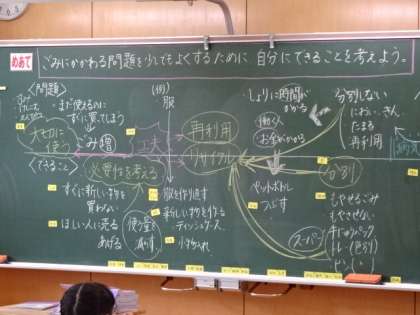 めあて
ごみにかかわる問題を少しでもよくするために、自分にできることを考えよう。
〈問題〉
・まだ使えるのに
すぐに買ってしまう
大切に
使う
ごみ増
工夫
(例)
服
再利用
リサイクル
・しょりに時間が
かかる
働く人
お金がかかる
分別しない
におい、きん
たまる
再利用
〈できること〉
必要性を考える
・すぐに新しい物を
買わない
・ほしい人に売る
あげる
使う量を
減らす
・服を作り直す
・新しい物を作る
ティッシュケース
・小物入れ
ペットボトル
つぶす
分別
もやせるごみ
もやせない
牛にゅうパック
トレー(色別)
スーパー